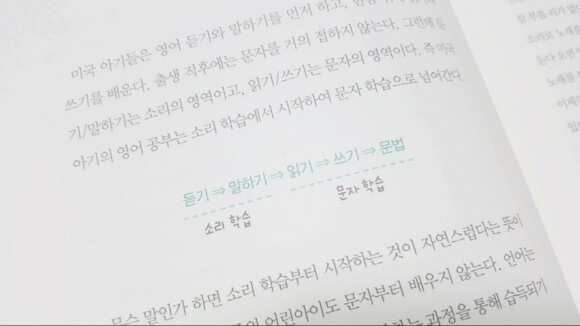 미국 아기들은 영어 듣기와 말하기를 먼저 하고,
쓰기를 배운다. 출생 직후에는 문자를 거의 접하지 않는다. 그런데 듣
기/말하기는 소리의 영역이고, 읽기/쓰기는 문자의 영역이다. 즉 미국
아기의 영어 공부는 소리 학습에서 시작하여 문자 학습으로 넘어간다.
듣기 ⇒ 말하기 ⇒ 읽기 ⇒ 쓰기 ⇒ 문법
소리 학습 문자 학습
무슨 말인가 하면 소리 학습부터 시작하는 것이 자연스럽다는 뜻이
어린아이도 문자부터 배우지 않는다. 언어는
과정을 통해 습득되기